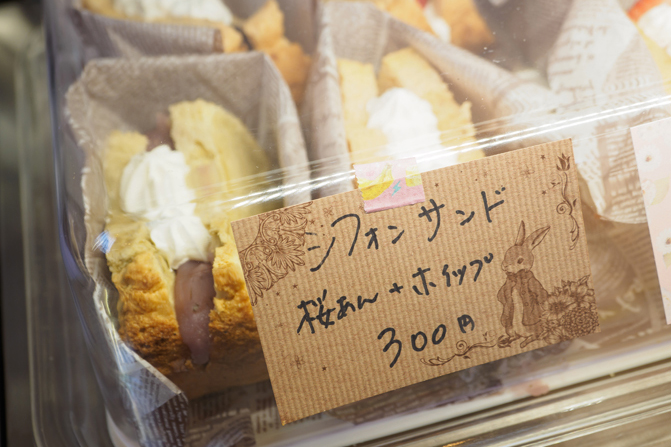 シフォンサンド
桜あん+ホイップ
300円